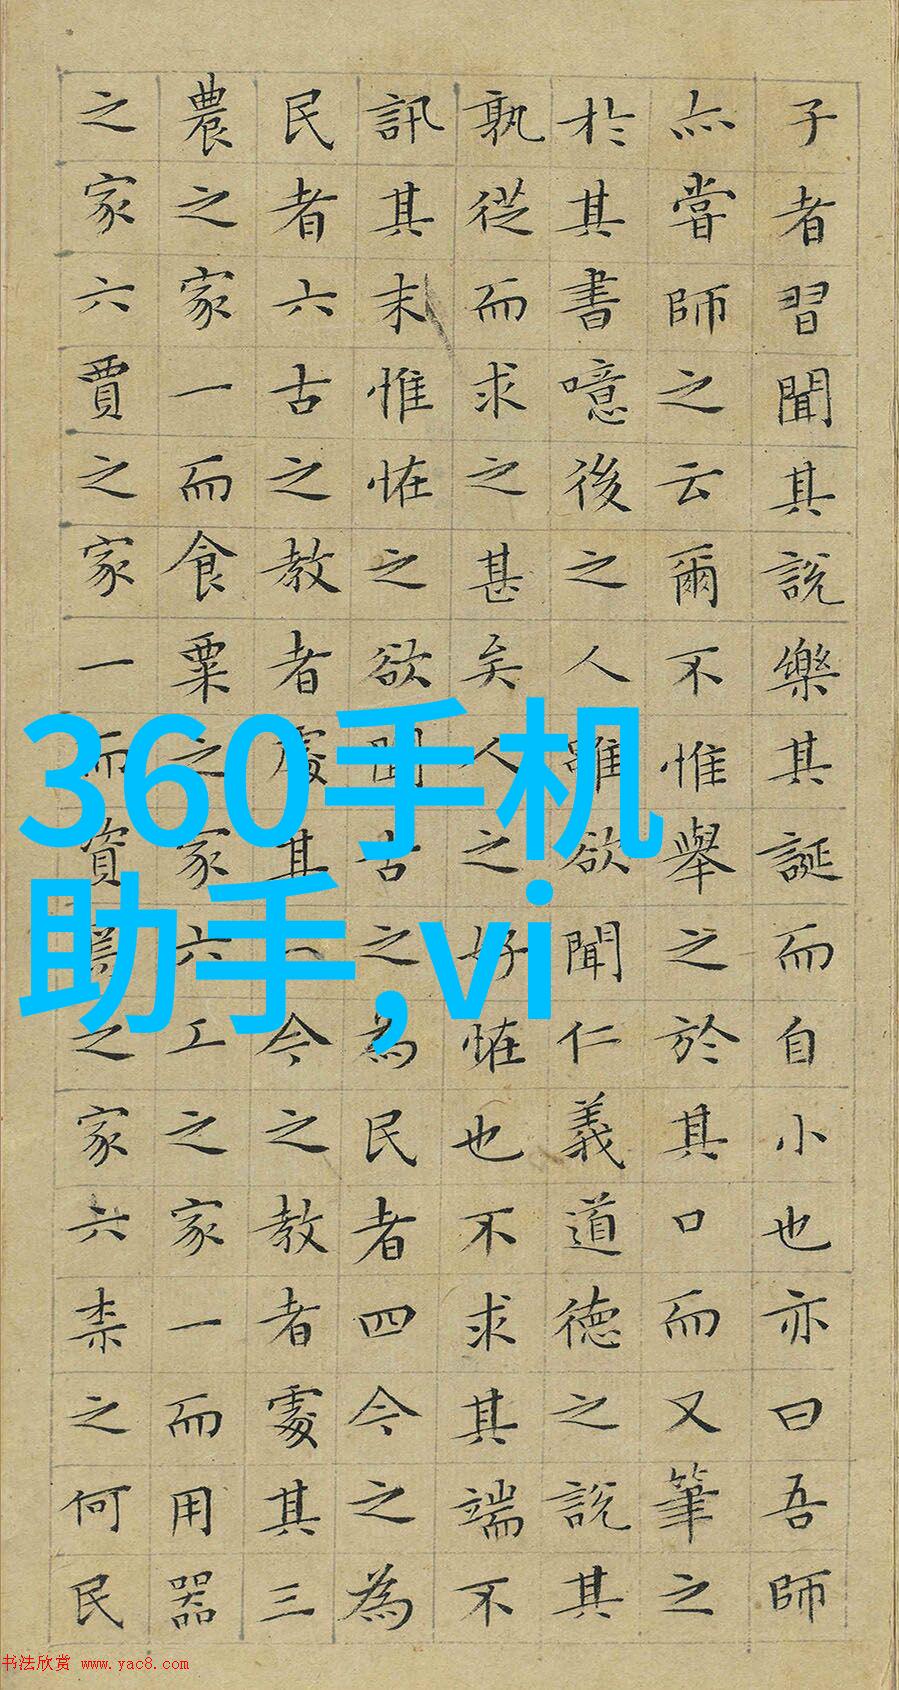 子者習聞其說樂其誕而自小也亦曰吾師
亦嘗師之云爾不惟舉之於其口而又筆之
於其書噫後之人雖欲聞仁義道德之說其
孰從而求之甚矣人之好恠也不求其端不
訊其末惟恠之欲聞古之為民者四今之為
民者六古之教者處其一今之教者處其三
農之家一而食粟之家六工之家一而用器
之家六賈之家一而資焉之家六柰之何民
360手机
助手,vi
书法欣赏 www.yac8.com